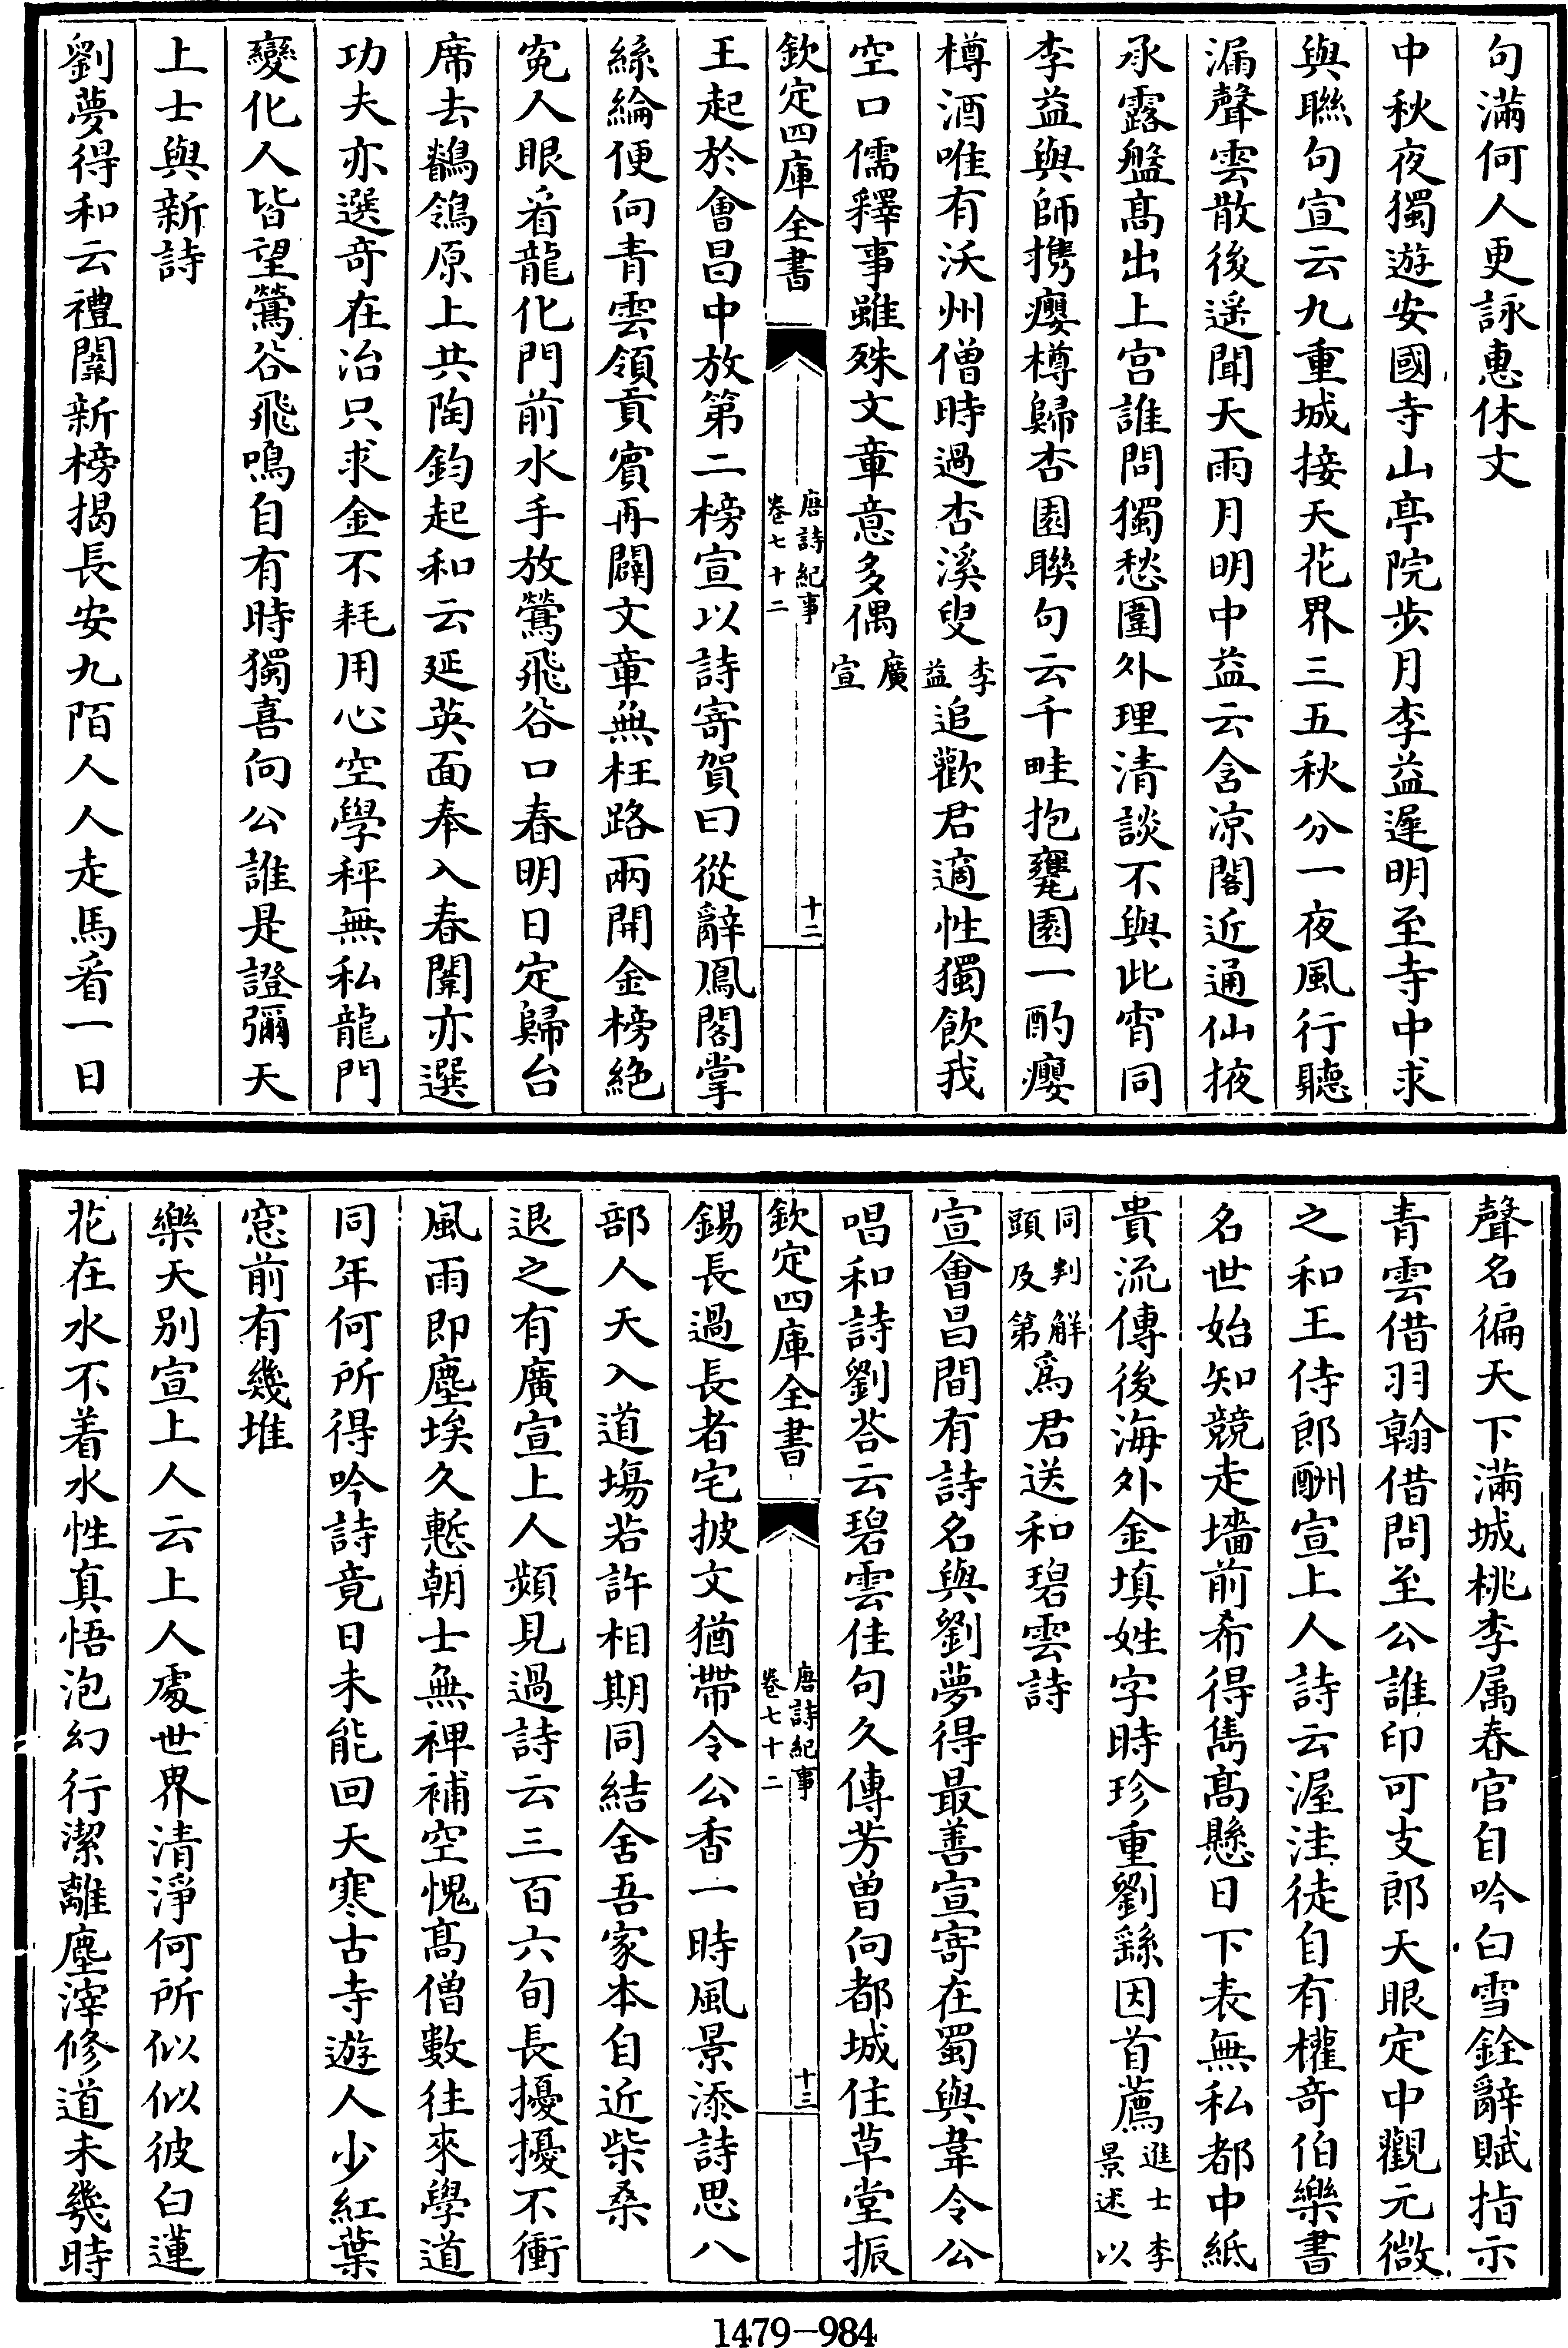 句滿何人更詠惠休文
中秋夜獨遊安國寺山亭院步月李益遲明至寺中求
與聯句宣云九重城接天花界三五秋分一夜風行聽
漏聲雲散後遥聞天雨月明中益云含凉閣近通仙掖
承露盤髙出上宫誰問獨愁圍外理清談不與此宵同
李益與師携癭樽歸杏園聯句云千畦抱甕園一酌癭
樽酒唯有沃州僧時過杏溪叟李益追歡君適性獨飲我
空口儒釋事雖殊文章意多偶廣宣
欽定四庫全書
唐詩紀事
卷七十二
十二
王起於會昌中放第二榜宣以詩寄賀曰從辭鳳閣掌
絲綸便向青雲領貢賓再闢文章無枉路兩開金榜絶
寃人眼看龍化門前水手放鶯飛谷口春明日定歸台
席去鶺鴒原上共陶鈞起和云延英面奉入春闈亦選
功夫亦選奇在冶只求金不耗用心空學秤無私龍門
變化人皆望鶯谷飛鳴自有時獨喜向公誰是證彌天
上士與新詩
劉夢得和云禮闈新榜揭長安九陌人人走馬看一日
聲名徧天下滿城桃李属春官自吟白雪銓辭賦指示
青雲借羽翰借問至公誰印可支郎天眼定中觀元微
之和王侍郎酬宣上人詩云渥洼徒自有權奇伯樂書
名世始知競走墻前希得雋髙懸日下表無私都中紙
貴流傳後海外金填姓字時珍重劉繇因首薦進士李景述以
同判解頭及第為君送和碧雲詩
宣會昌間有詩名與劉夢得最善宣寄在蜀與韋令公
唱和詩劉荅云碧雲佳句久傳芳曽向都城住草堂振
欽定四庫全書
唐詩紀事
卷七十二
十三
錫長過長者宅披文猶帶令公香一時風景添詩思八
部人天入道塲若許相期同結舍吾家本自近柴桑
退之有廣宣上人頻見過詩云三百六旬長擾擾不衝
風雨即塵埃久慙朝士無裨補空愧髙僧數往來學道
同年何所得吟詩竟日未能回天寒古寺遊人少紅葉
窓前有幾堆
樂天别宣上人云上人處世界清淨何所似似彼白蓮
花在水不着水性真悟泡幻行潔離塵滓修道未幾時
1479-984